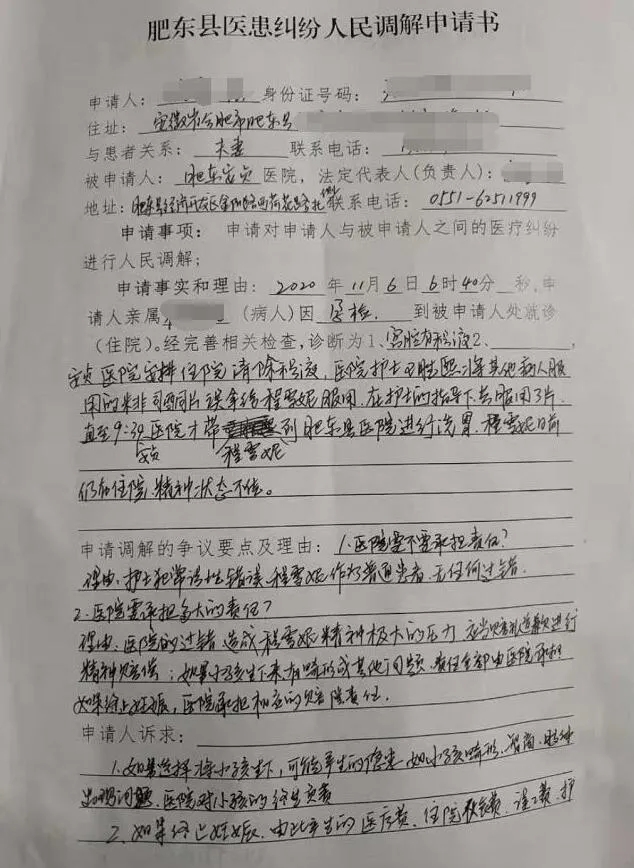 肥东县医患纠纷人民调解申请书
申请人： 身份证号码：
住址：安徽省合肥市肥东县
与患者关系：夫妻 联系电话：
被申请人：肥东安贞医院，法定代表人(负责人)：
地址：肥东县经济开发区 联系电话：0551-62511999
申请事项：申请对申请人与被申请人之间的医疗纠纷
进行人民调解；
申请事实和理由：2020年11月6日6时40分 秒，申
请人亲属 （病人）因 孕检. 到被申请人处就诊
（住院）。经完善相关检查，诊断为1、宫腔有积液2、
安贞医院安排住院清除积液，医院护士 将其他病人服
用的米非司酮片误拿给程雪妮服用，在护士的指导下共服用3片.
直至9:30医院才带 到肥东县医院进行洗胃. 程雪妮目前
安贞 程雪妮
仍在住院.精神状态不佳。
申请调解的争议要点及理由：1.医院需不需承担责任？
理由：护士犯常识性错误.程雪妮作为普通患者.无任何过错.
2.医院需承担多大的责任？
理由：医院的过错造成程雪妮精神极大的压力.应当赔礼道歉及进行
精神赔偿；如果小孩生下来有畸形或其他问题.责任全部由医院承担
如果终止妊娠，医院承担相应的赔偿责任.
申请人诉求：
1.如果选择将小孩生下,可能产生的 如小孩畸形、智商、
出现问题.医院对小孩的终生负责
2.如果终止妊娠.由此产生的医疗费、住院 费、误工费、护